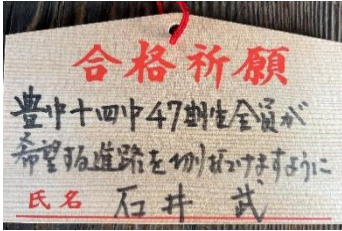 合格祈願
豊中十四中47期生全員が
希望する進路を切り拓けますように
氏名 石井 武